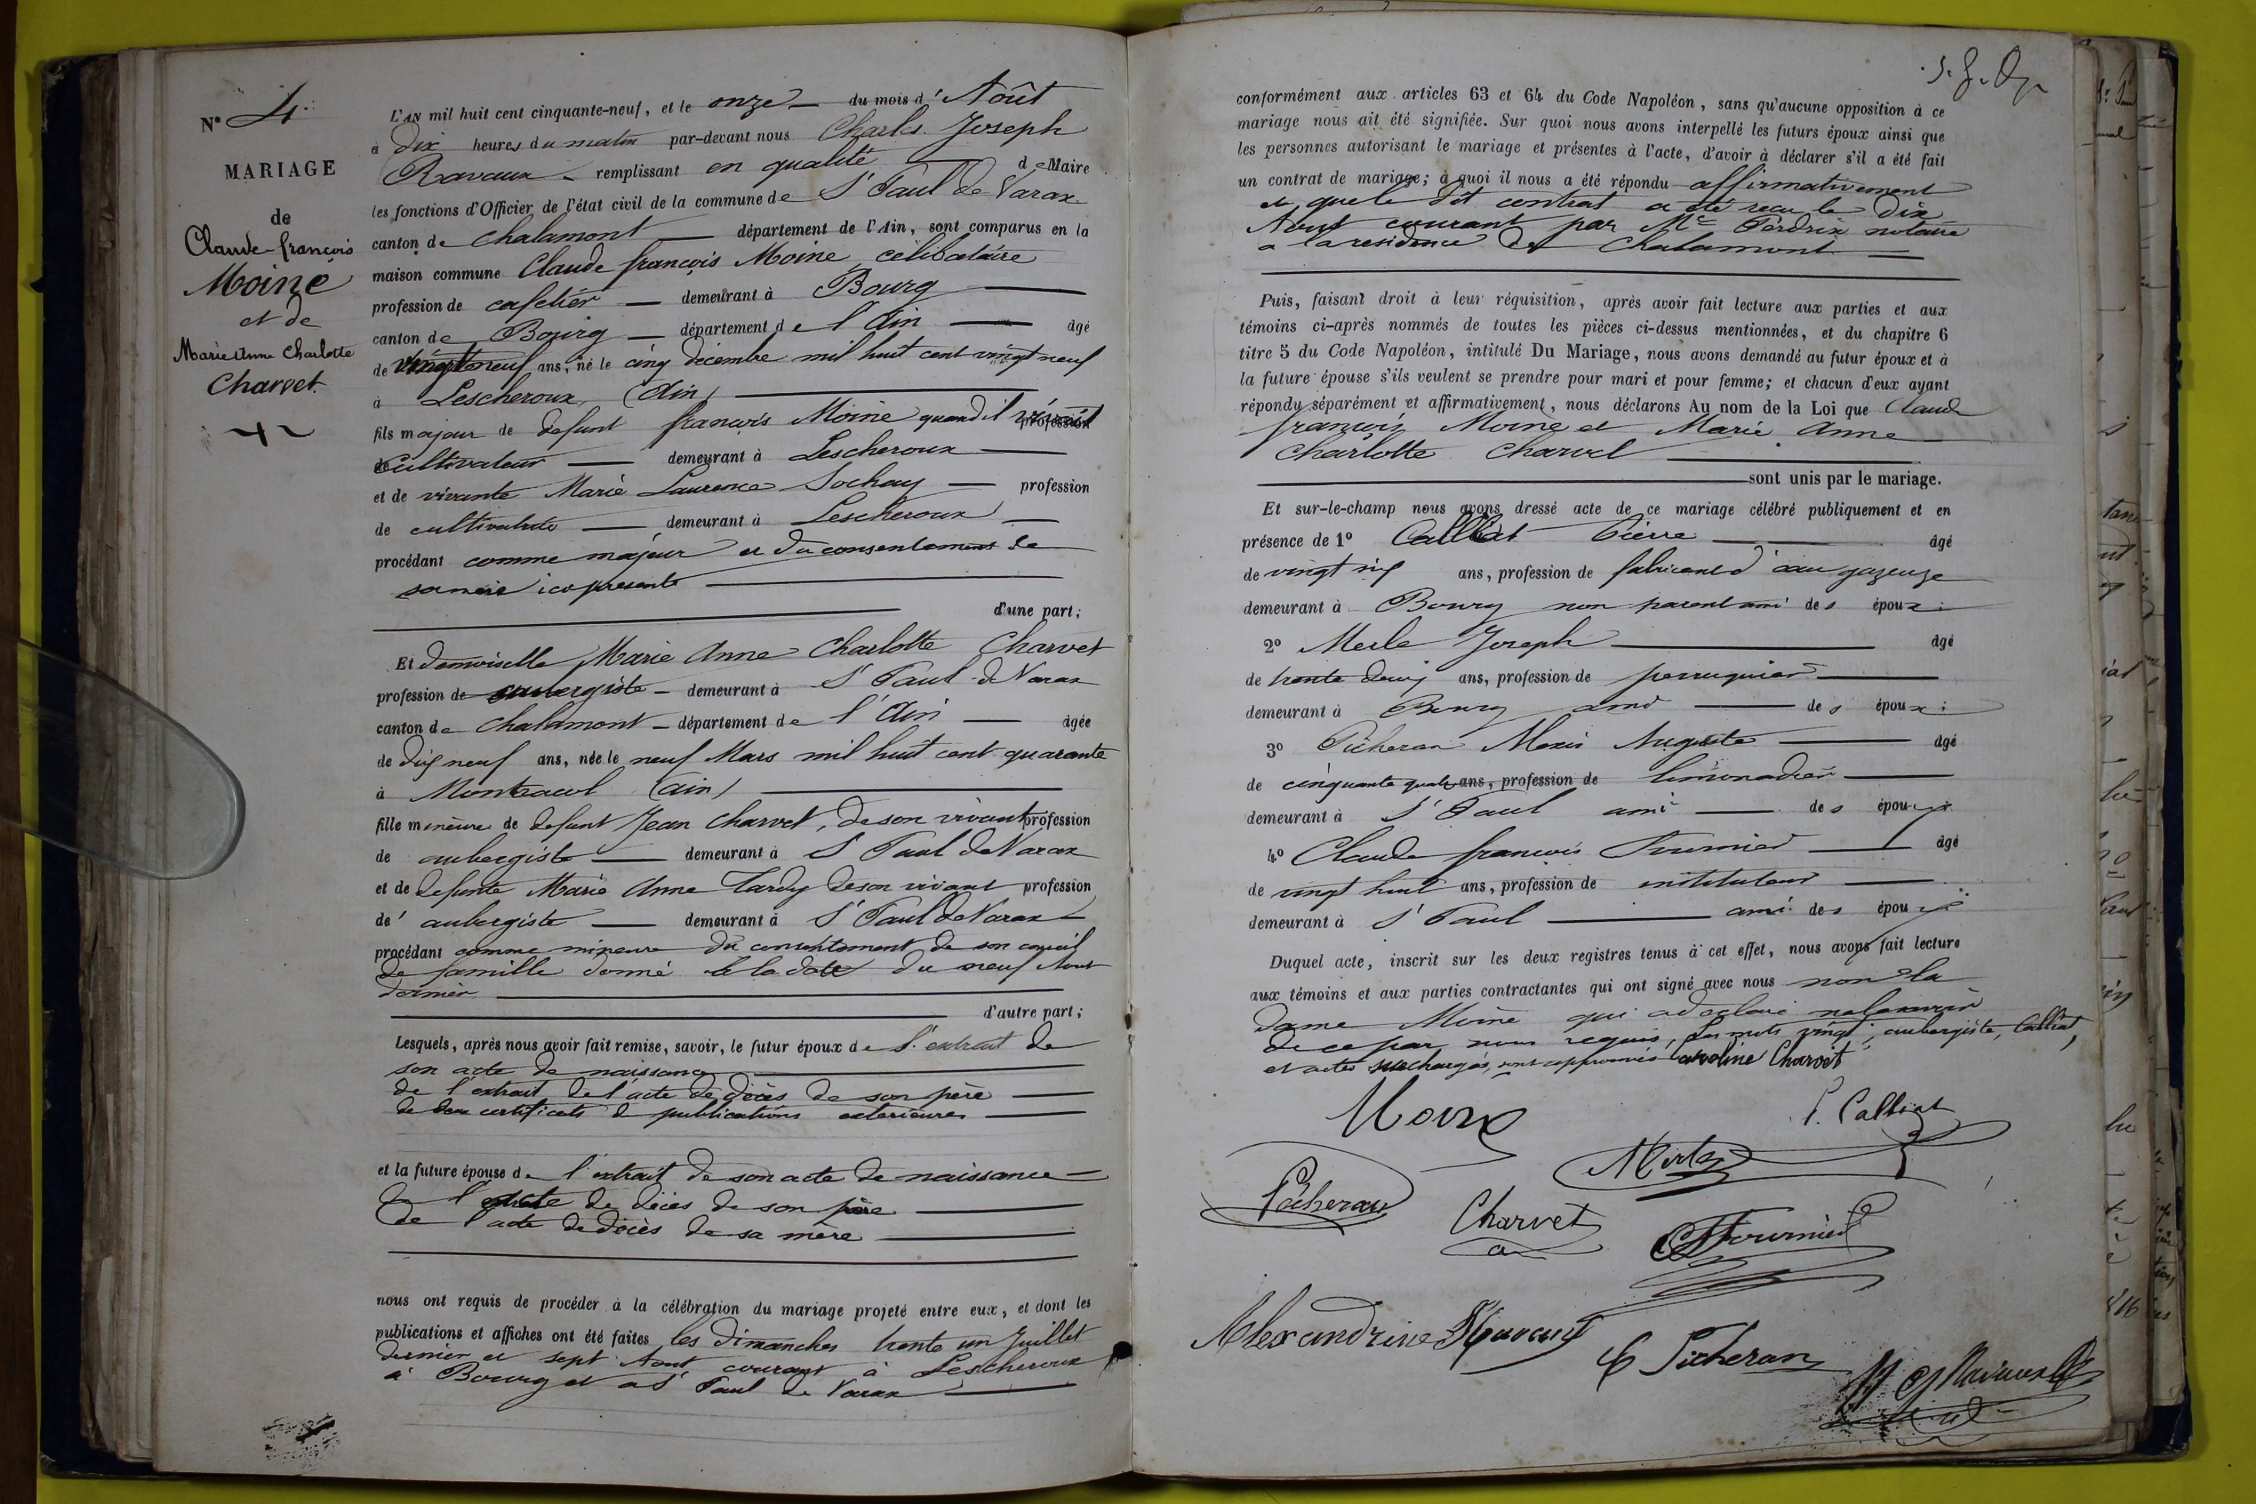 N° 4.
MARIAGE
de
Claude françois
Moine
et de
Marie Anne Charlotte
Charvet
L'AN mil huit cent cinquante-neuf, et le onze du mois d'Août
à dix heures du matin par-devant nous Charles Joseph
Ravaux remplissant en qualité de Maire
les fonctions d'Officier de l'état civil de la commune de St Paul de Varax
canton de Chalamont département de l'Ain, sont comparus en la
maison commune Claude françois Moine célibataire
profession de cafetier demeurant à Bourg
canton de Bourg département de l'Ain âgé
de vingt neuf ans, né le cinq décembre mil huit cent vingt neuf
à Lescheroux (Ain)
fils majeur de defunt françois Moine quand il vivait profession
de cultivateur demeurant à Lescheroux
et de vivante Marie Laurence Sochay profession
de cultivatrice demeurant à Lescheroux
procédant comme majeur et du consentement de
sa mère ici presente
d'une part;
Et demoiselle Marie Anne Charlotte Charvet
profession de aubergiste demeurant à St Paul de Varax
canton de Chalamont département de l'Ain âgée
de dix neuf ans, née le neuf Mars mil huit cent quarante
à Montracol (Ain)
fille mineure de defunt Jean Charvet, de son vivant profession
de aubergiste demeurant à St Paul de Varax
et de defunte Marie Anne Tardy de son vivant profession
de aubergiste demeurant à St Paul de Varax
procédant comme mineure du consentement de son conseil
de famille donné à la date du neuf Aout
dernier
d'autre part;
Lesquels, après nous avoir fait remise, savoir, le futur époux de l'extrait de
son acte de naissance
de l'extrait de l'acte de décès de son père
de deux certificats de publications exterieures
et la future épouse de l'extrait de son acte de naissance
de l'acte de décès de son père
de l'acte de décès de sa mère
nous ont requis de procéder à la célébration du mariage projeté entre eux, et dont les
publications et affiches ont été faites les dimanches trente un Juillet
dernier et sept Aout courant à Lescheroux
à Bourg et à St Paul de Varax
conformément aux articles 63 et 64 du Code Napoléon, sans qu'aucune opposition à ce
mariage nous ait été signifiée. Sur quoi nous avons interpellé les futurs époux ainsi que
les personnes autorisant le mariage et présentes à l'acte, d'avoir à déclarer s'il a été fait
un contrat de mariage; à quoi il nous a été répondu affirmativement
et que le dit contrat a été reçu le dix
Aout courant par Me Perdrix notaire
à la residence de Chalamont
Puis, faisant droit à leur réquisition, après avoir fait lecture aux parties et aux
témoins ci-après nommés de toutes les pièces ci-dessus mentionnées, et du chapitre 6
titre 5 du Code Napoléon, intitulé Du Mariage, nous avons demandé au futur époux et à
la future épouse s'ils veulent se prendre pour mari et pour femme; et chacun d'eux ayant
répondu séparément et affirmativement, nous déclarons Au nom de la Loi que Claude
françois Moine et Marie Anne
Charlotte Charvet
sont unis par le mariage.
Et sur-le-champ nous avons dressé acte de ce mariage célébré publiquement et en
présence de 1° Calliat Pierre âgé
de vingt six ans, profession de fabricant d'eau gazeuze
demeurant à Bourg non parent ami des époux;
2° Merle Joseph âgé
de trente deux ans, profession de perruquier
demeurant à Bourg ami des époux;
3° Picheran Alexis Auguste âgé
de cinquante quatre ans, profession de limonadier
demeurant à St Paul ami des époux
4° Claude françois Fournier âgé
de vingt huit ans, profession de instituteur
demeurant à St Paul ami des époux
Duquel acte, inscrit sur les deux registres tenus à cet effet, nous avons fait lecture
aux témoins et aux parties contractantes qui ont signé avec nous non la
dame Moine qui a déclaré ne le savoir
de ce par nous requis, Les mots vingt, aubergiste, Calliat,
et acte surchargés, sont approuvés Caroline Charvet
Moine
P. Calliat
Merle
Picheran
Charvet
Fournier
Alexandrine
Picheran